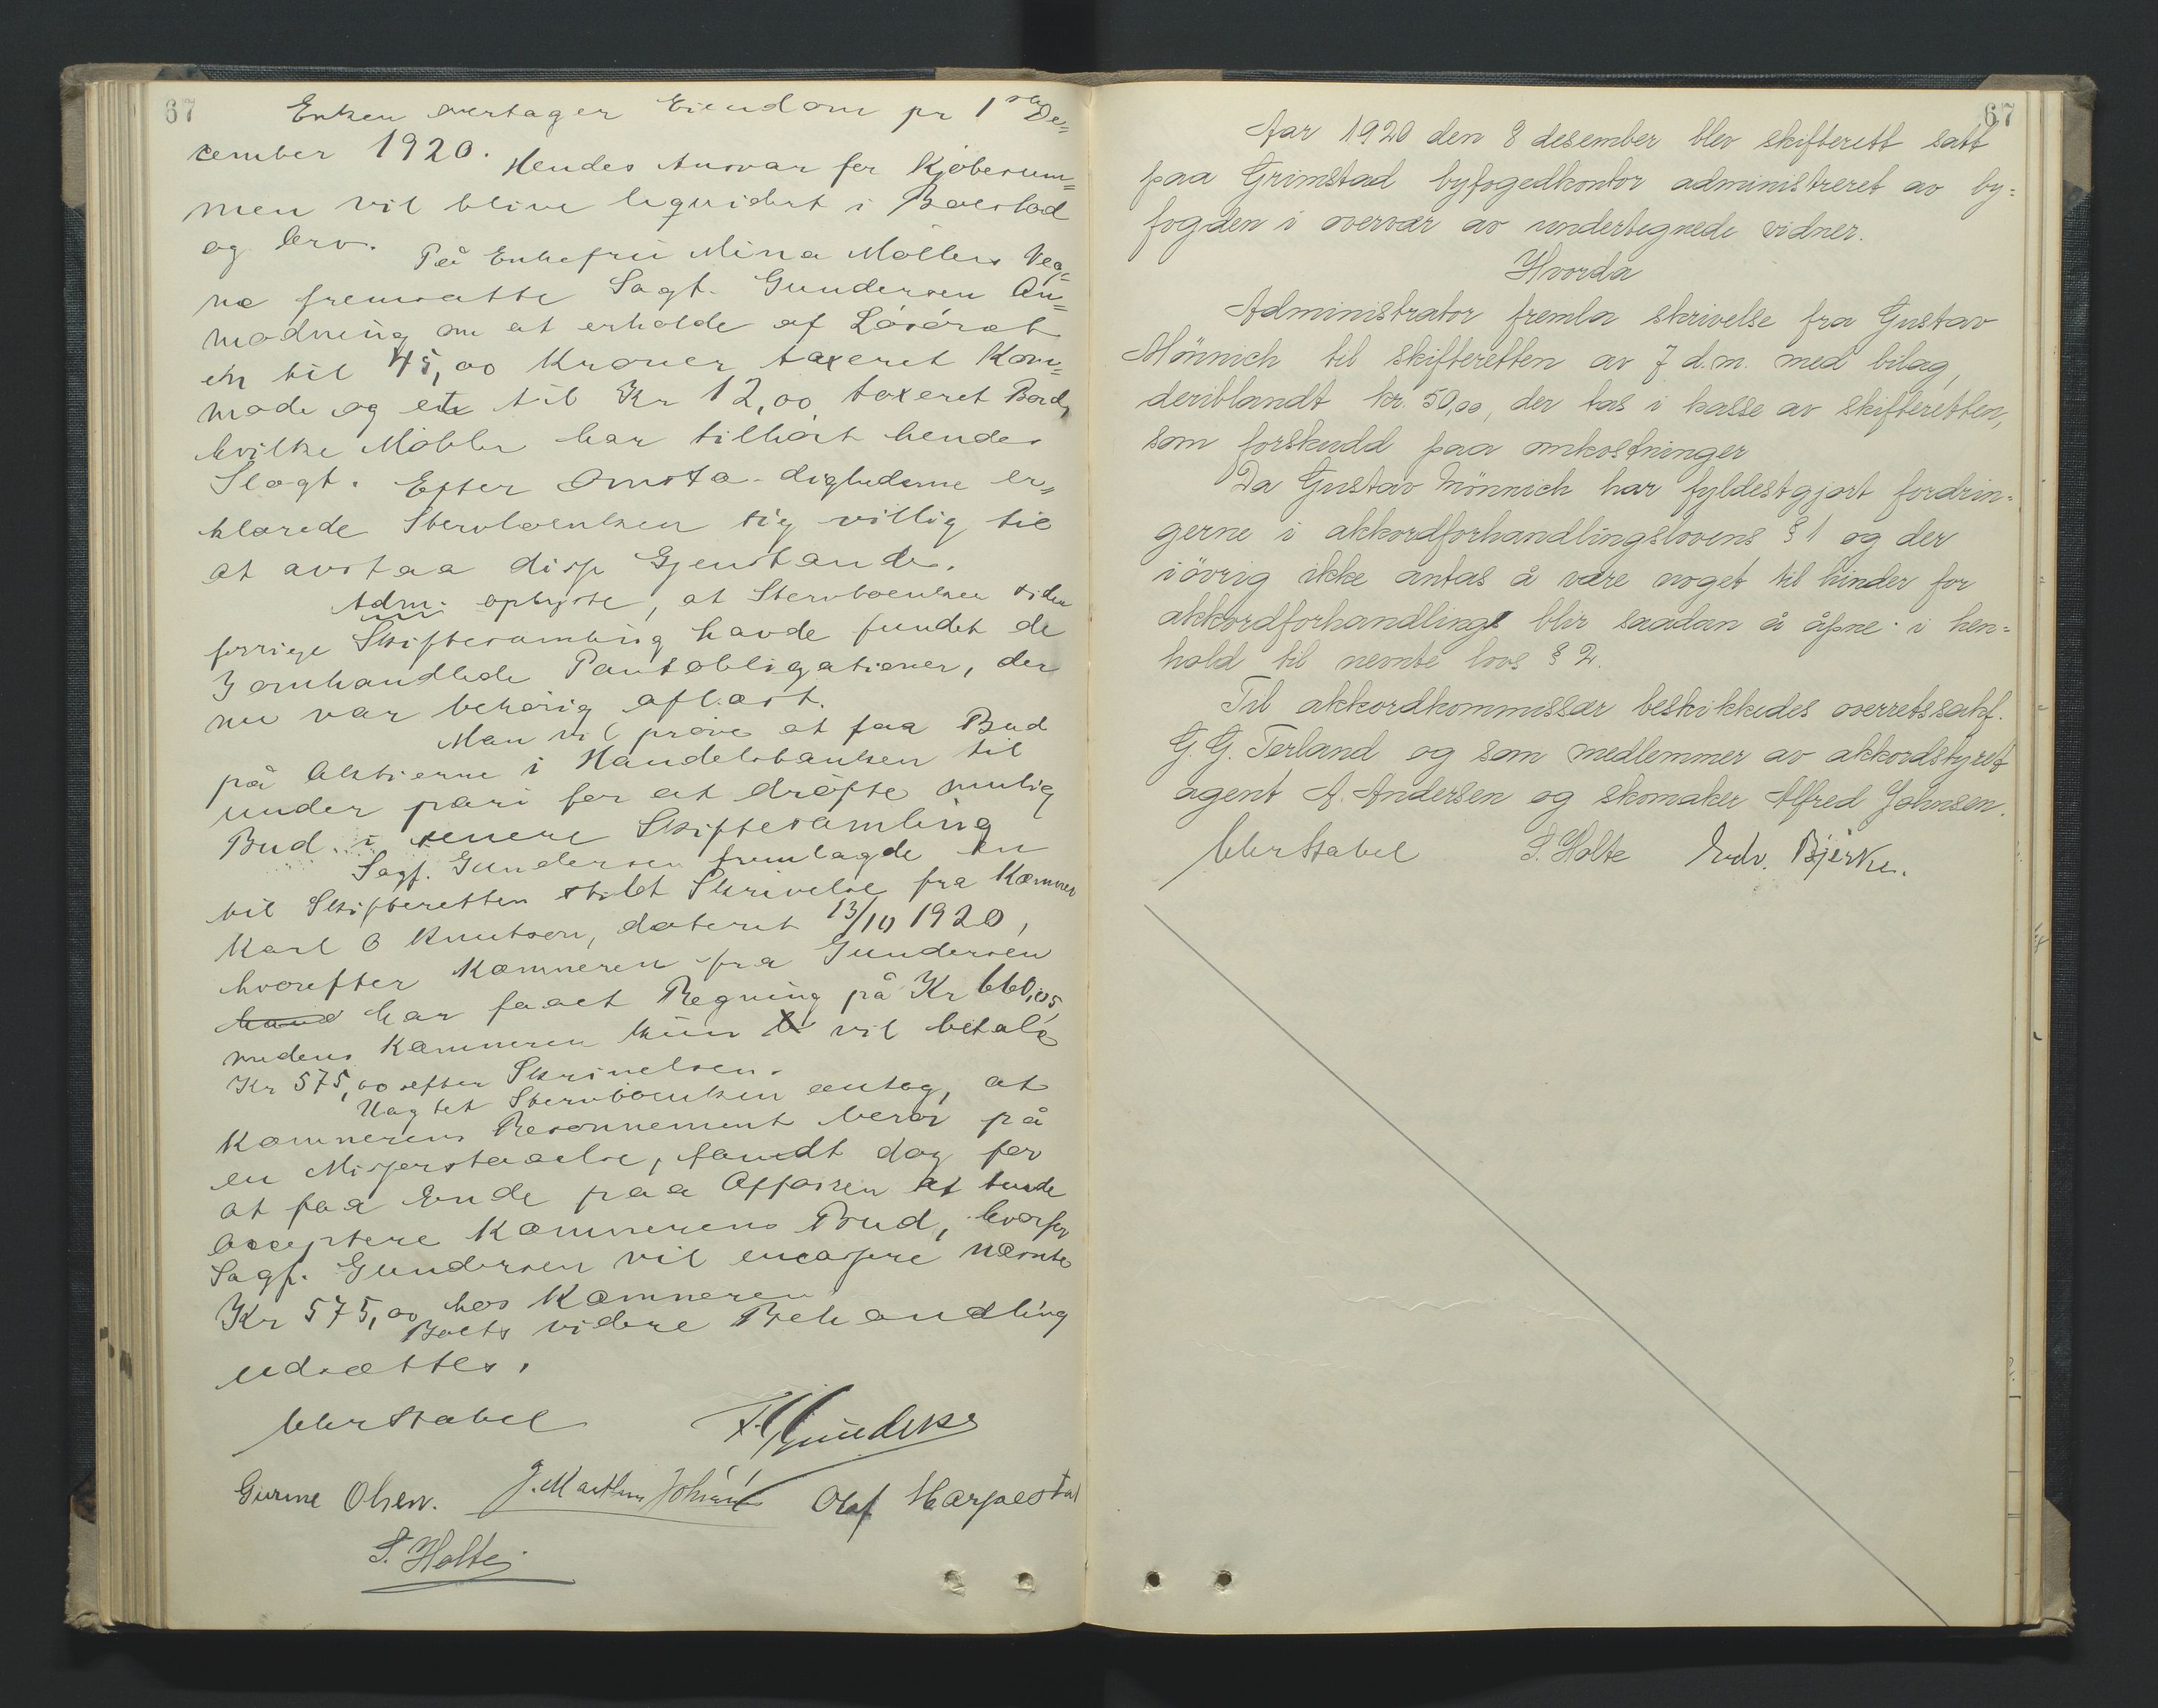 67
Enken overtager Eiendom pr 1ste De=
cember 1920.
Hendes Ansvar for Kjøbesum=
men vil blive liquidert i Boeslod
og Arv.
På Enkefru Mina Møllers Veg=
ne fremsatte Sagf. Gundersen An=
modning om at erholde af Løsøret
en til 45,00 Kroner taxeret Kom=
mode og et til Kr 12,00 taxeret Bord,
hvilke Møbler har tilhørt hendes
Slægt. Efter Omstændighederne er=
klærede Stervboenken sig villig til
at avstaa disse Gjenstande.
Adm. oplyste, at Stervboenken siden
forrige Skiftesamling havde fundet de
3 omhandlede Pantobligationer, der
nu var behørig aflæst.
Man vil prøve at faa Bud
på Aktierne i Handelsbanken til
under pari for at drøfte mulig
Bud i senere Skiftesamling
Sagf. Gundersen fremlagde en
til Skifteretten stilet Skrivelse fra Kæmner
Karl O Knutson, dateret 13/10 1920,
hvorefter Kæmneren fra Gundersen
havd har faaet Regning på Kr 660,05,
medens Kæmneren kun vil betale
Kr 575,00 efter Skrivelsen.
Uagtet Stervboenken antog, at
Kæmnerens Resonnement beror på
en Misforstaaelse, fandt dog for
at faa Ende paa Affæren at burde
acceptere Kæmnerens Bud, hvorfor
Sagf. Gundersen vil encassere nævnte
Kr 575,00 hos Kæmneren
Boets videre Behandling
udsættes.
Stabel Gundersen
Gurine Olsen. J. Martin Johansen Olaf Harpestad
S. Holte
67
Aar 1920 den 8 desember blev skifterett satt
paa Grimstad byfogedkontor administreret av by=
fogden i overvær av undertegnede vidner.
Hvorda
Administrator fremla skrivelse fra Gustav
Mönnich til skifteretten av 7 d.m. med bilag,
deriblandt kr. 50,00, der tas i kasse av skifteretten,
som forskudd paa omkostninger
Da Gustav Mönnich har fyldestgjort fordrin=
gerne i akkordforhandlingslovens § 1 og der
iövrig ikke antas å være noget til hinder for
akkordforhandling blir saadan å åpne i hen=
hold til nevnte lovs § 2.
Til akkordkommissær beskikkedes overretssakf.
G. G. Terland og som medlemmer av akkordstyret
agent A. Andersen og skomaker Alfred Johnsen.
Stabel S. Holte Edv. Bjerke.